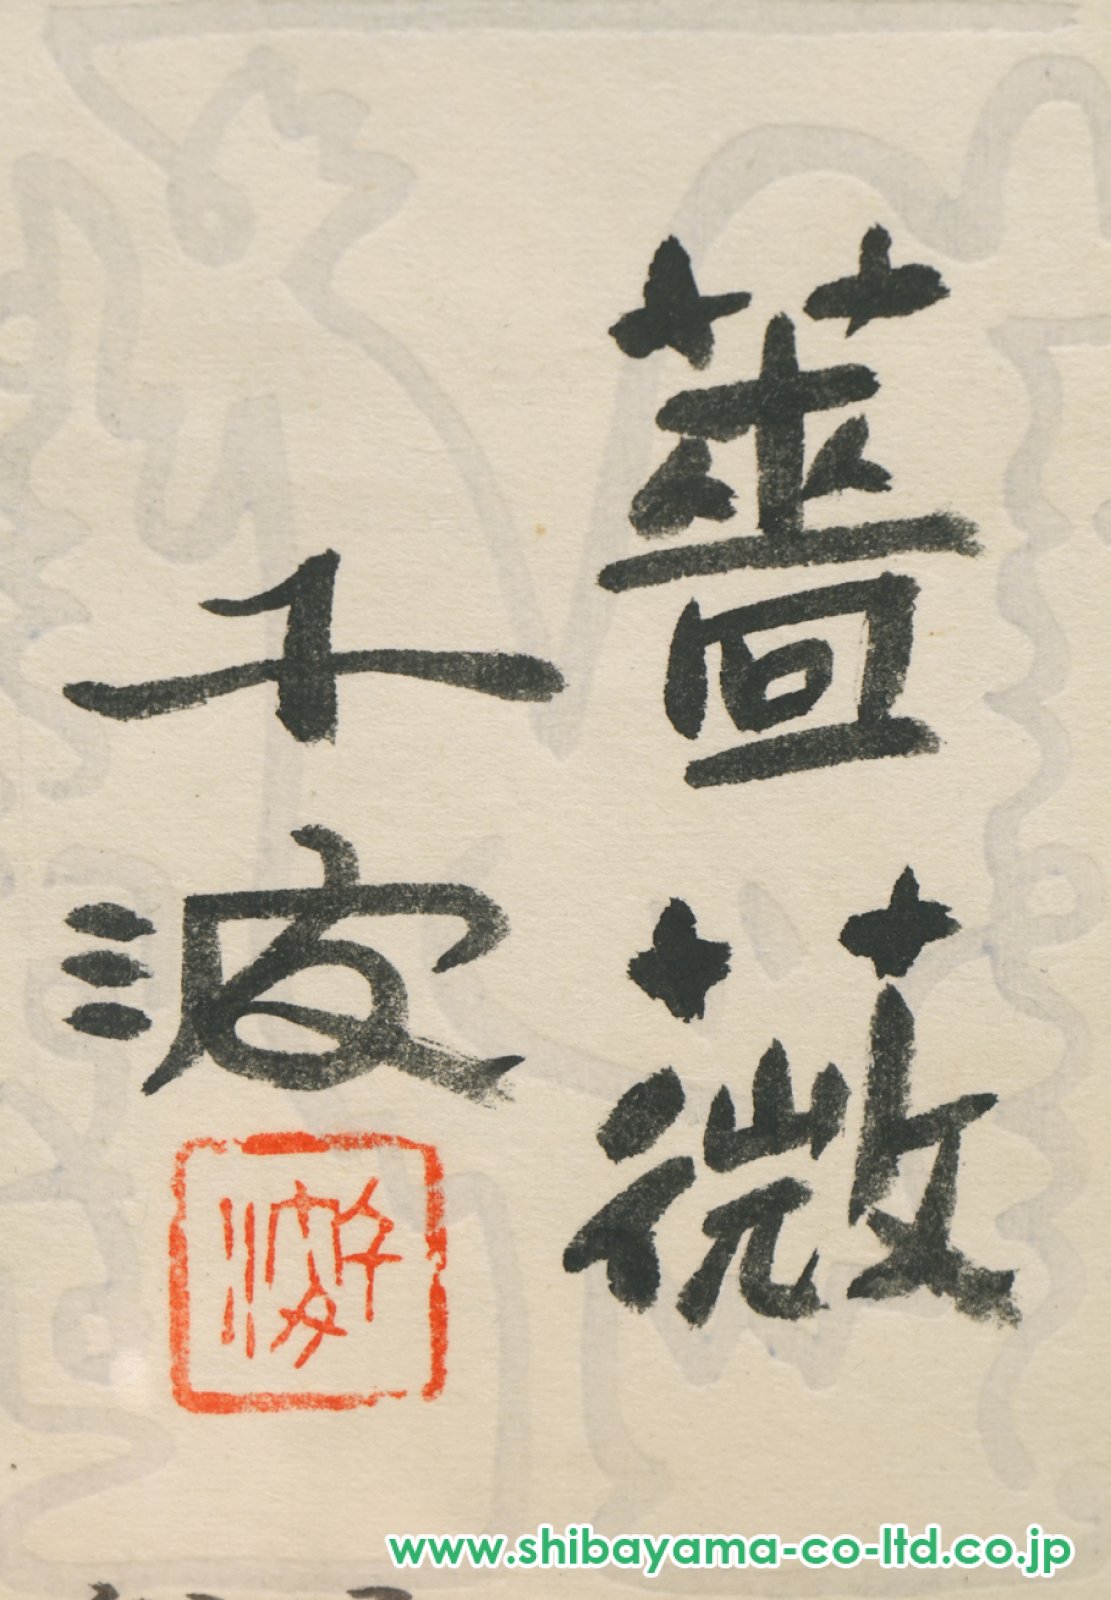 薔薇
千波
千波
www.shibayama-co-ltd.co.jp